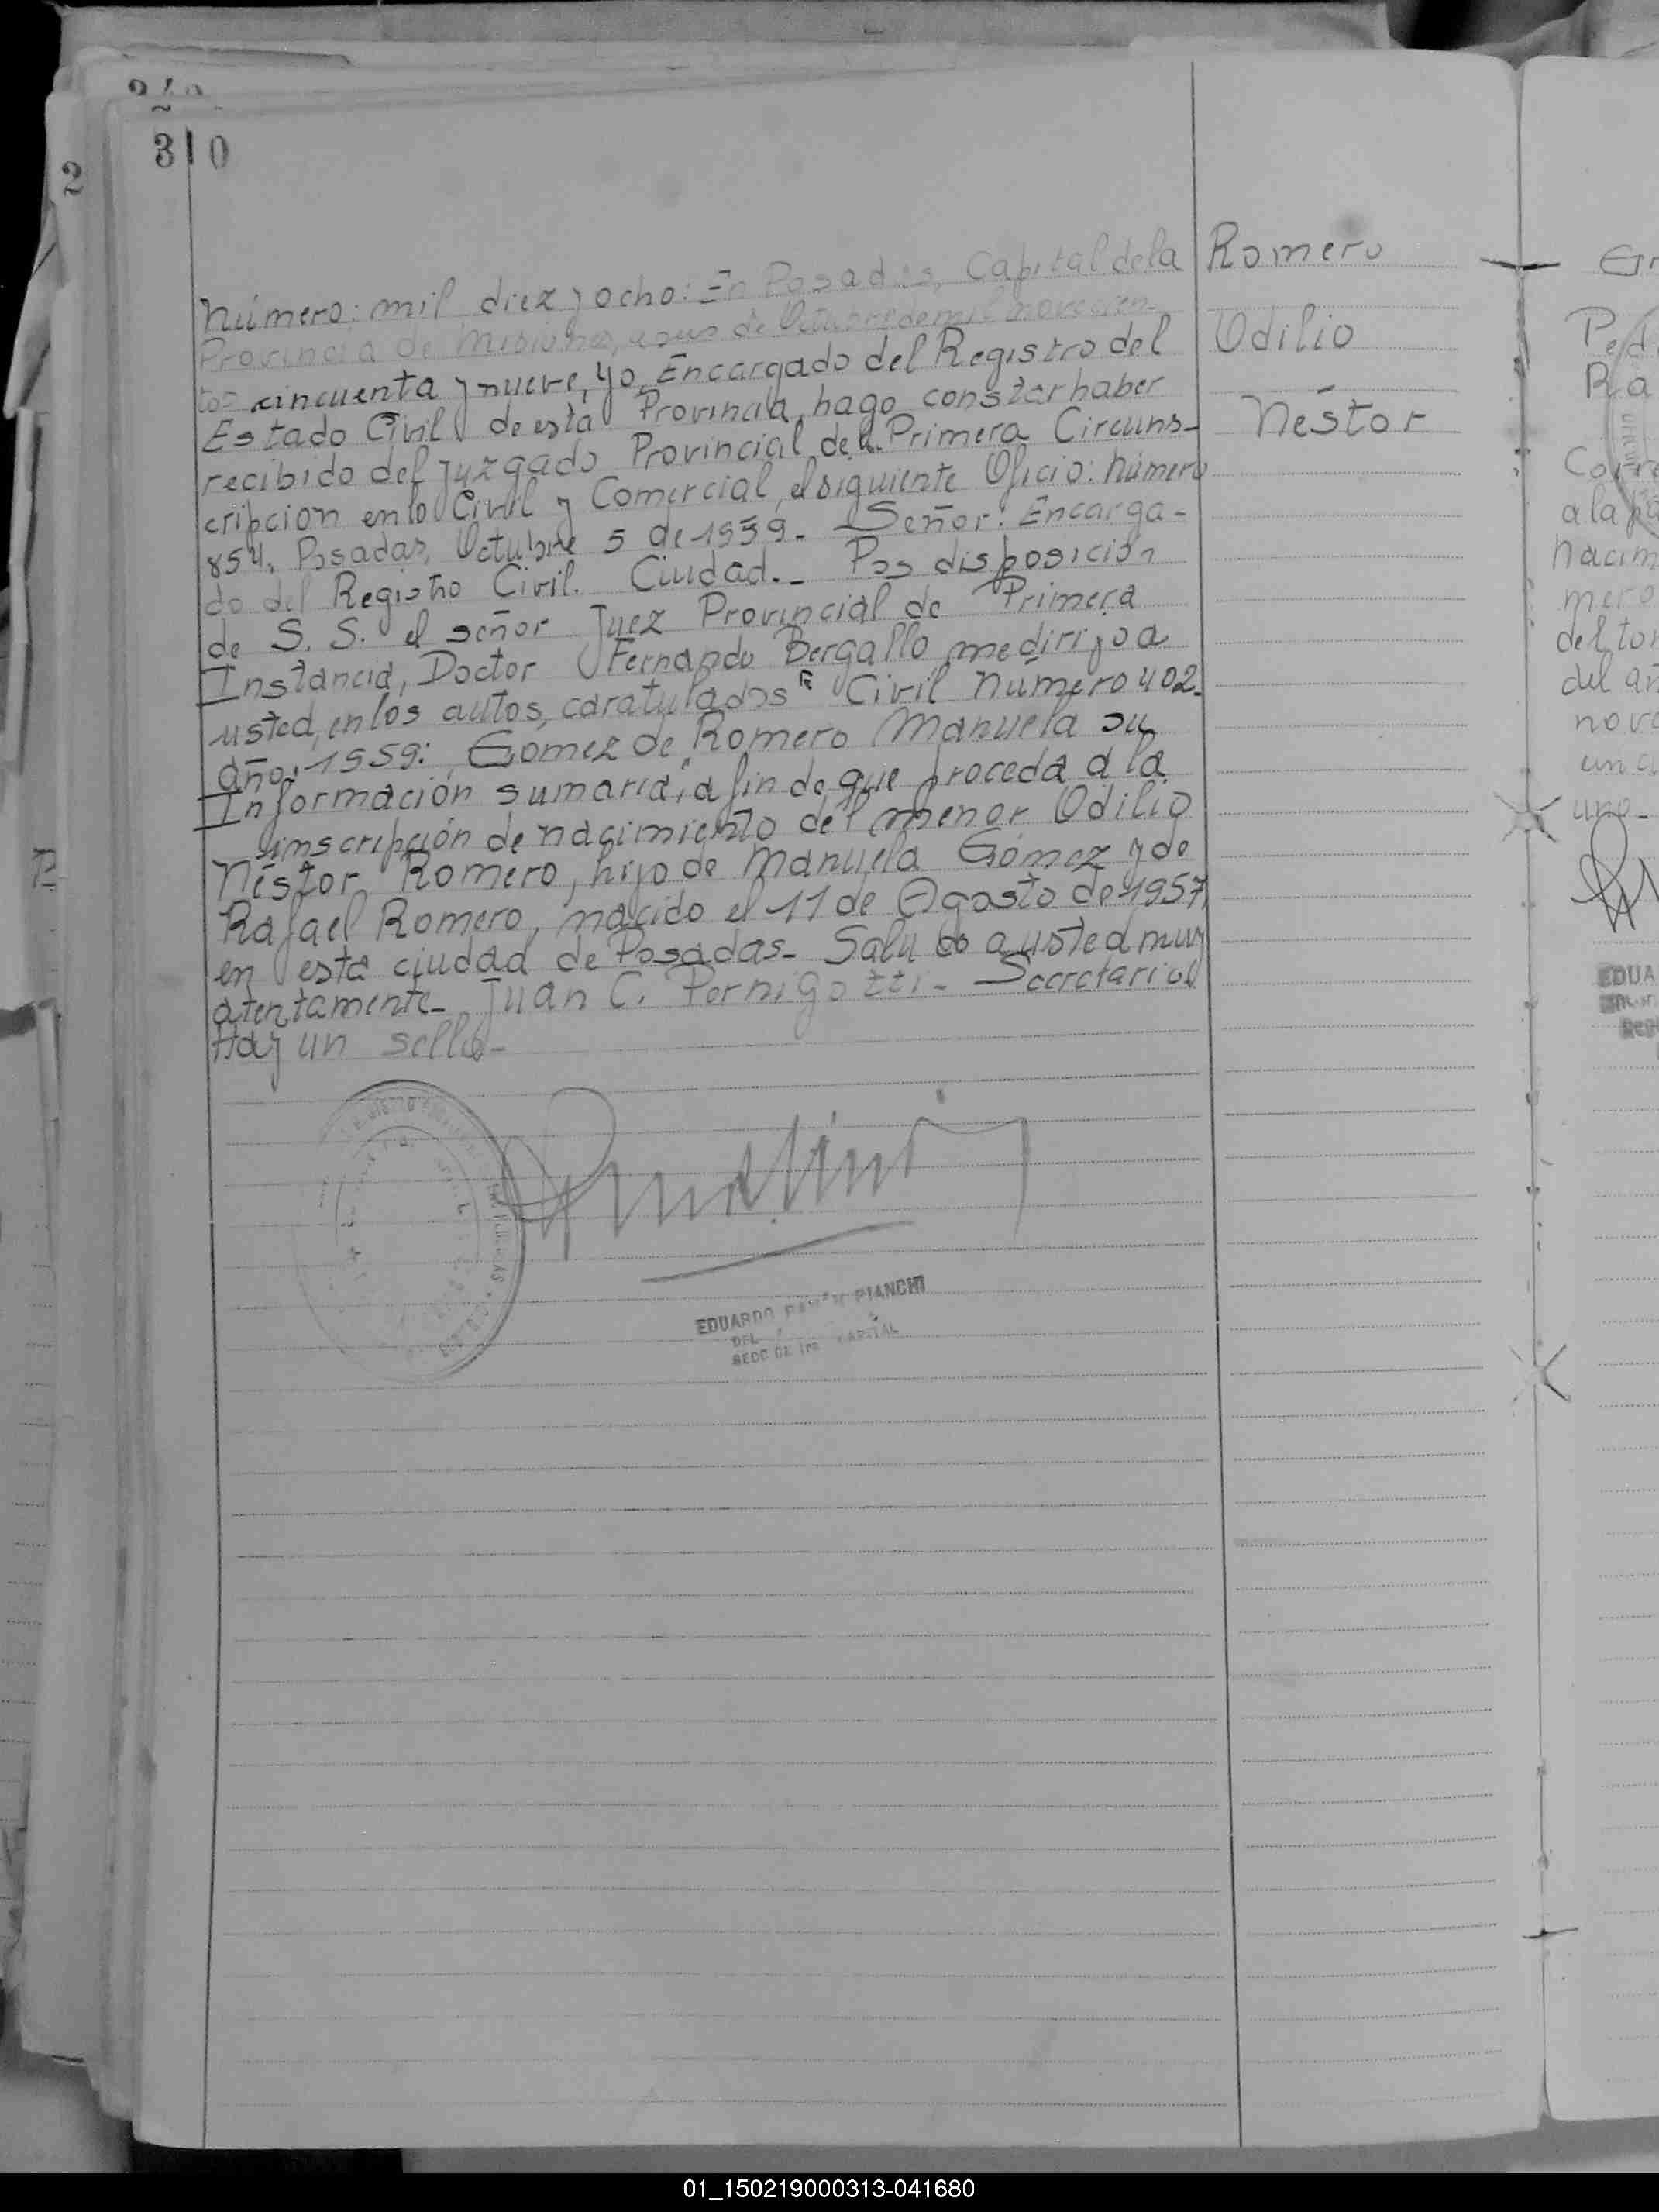 310
2
Número: mil diez y ocho: En Posadas, Capital de la
Provincia de Misiones, a de Octubre de mil novecien-
tos cincuenta y nueve, yo, Encargado del Registro del
Estado Civil de esta Provincia, hago constar haber
recibido del Juzgado Provincial de Primera Circuns-
cripcion en lo Civil y Comercial, el siguiente Oficio: Número
854. Posadas, Octubre 5 de 1959.- Señor: Encarga-
do del Registro Civil. Ciudad.- Por disposición
de S. S. el señor Juez Provincial de Primera
Instancia, Doctor Fernando Bergallo me dirijo a
usted, en los autos, caratulados " Civil Número 402.
año, 1959: Gómez de Romero Manuela su
Información sumaria", a fin de que proceda a la
inscripción de nacimiento del menor Odilio
Néstor Romero, hijo de Manuela Gómez y de
Rafael Romero, nacido el 11 de Agosto de 1957,
en esta ciudad de Posadas- Saludo a usted muy
atentamente- Juan C. Pernigotti- Secretario
Hay un sello-
Romero
Odilio
Néstor
EDUARDO RAMÓN PIANCHI
DEL
SECC CAPITAL
Ra
a la
Nacim
mero
del to
del añ
nove
un
uno-
EDUA
01_150219000313-041680